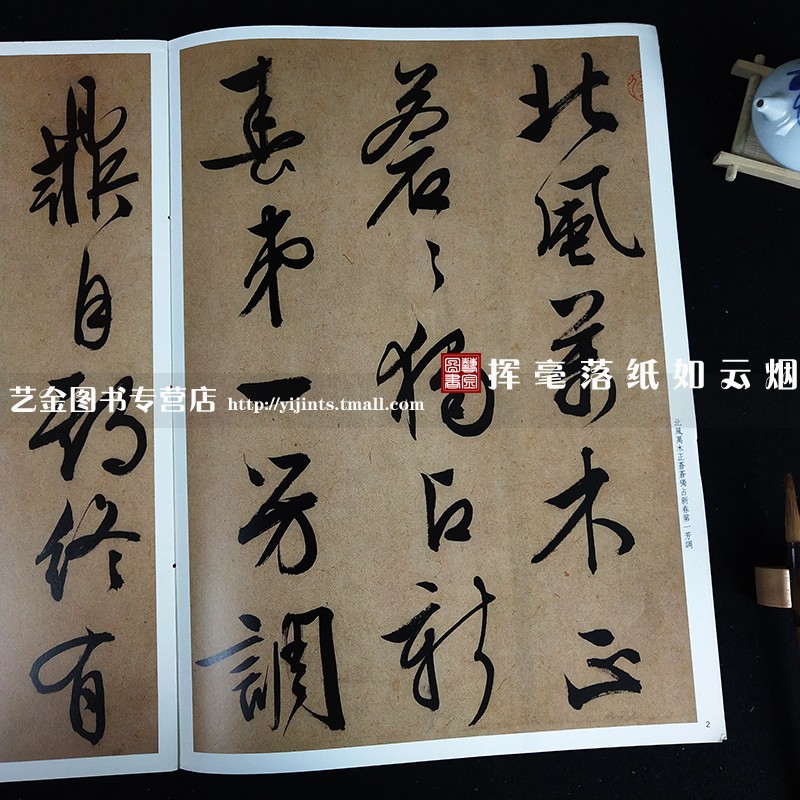 北風萬木正
蒼〻獨占新
春第一芳調
鼎自期終有
北風萬木正蒼蒼獨占新春第一芳調
2
藝宗圖書
挥毫落纸如云烟
艺金图书专营店 http://yijints.tmall.com